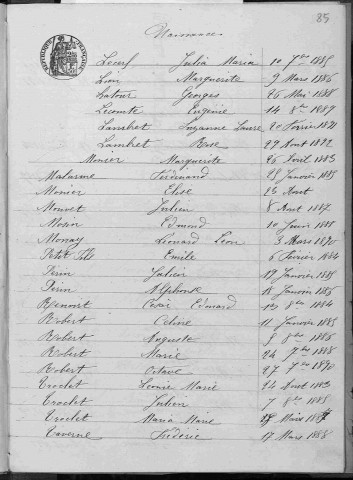 85
Naissances
RÉPUBLIQUE FRANÇAISE
Lecerf Julia Maria 10 7bre 1885
Lion Marguerite 9 Mars 1886
Latour Georges 26 Mai 1888
Lecomte Eugénie 14 8bre 1889
Lambret Suzanne Laure 20 Février 1891
Lambret Rose 29 Aout 1892
Monier Marguerite 26 Avril 1883
Malarme Ferdinand 28 Janvier 1885
Monier Elise 23 Aout
Mouret Julien 8 Aout 1887
Morin Edmond 10 1888
Monay Léonard Léon 3 Mars 1890
Petit Fils Emile 6 Février 1884
Perin Julien 19 Janvier 1885
Perin Alphonse 18 Janvier 1886
Renoit César Edmond 8bre 1884
Robert Céline 11 Janvier 1885
Robert Auguste 5 8bre 1886
Robert Marie 24 7bre 1888
Robert Octave 27 7bre 1890
Troclet Léonie Marie 24 Aout 1883
Troclet Julien 7 8bre 1885
Troclet Maria Marie Mars 1887
Taverne Frédéric 17 Mars 1888